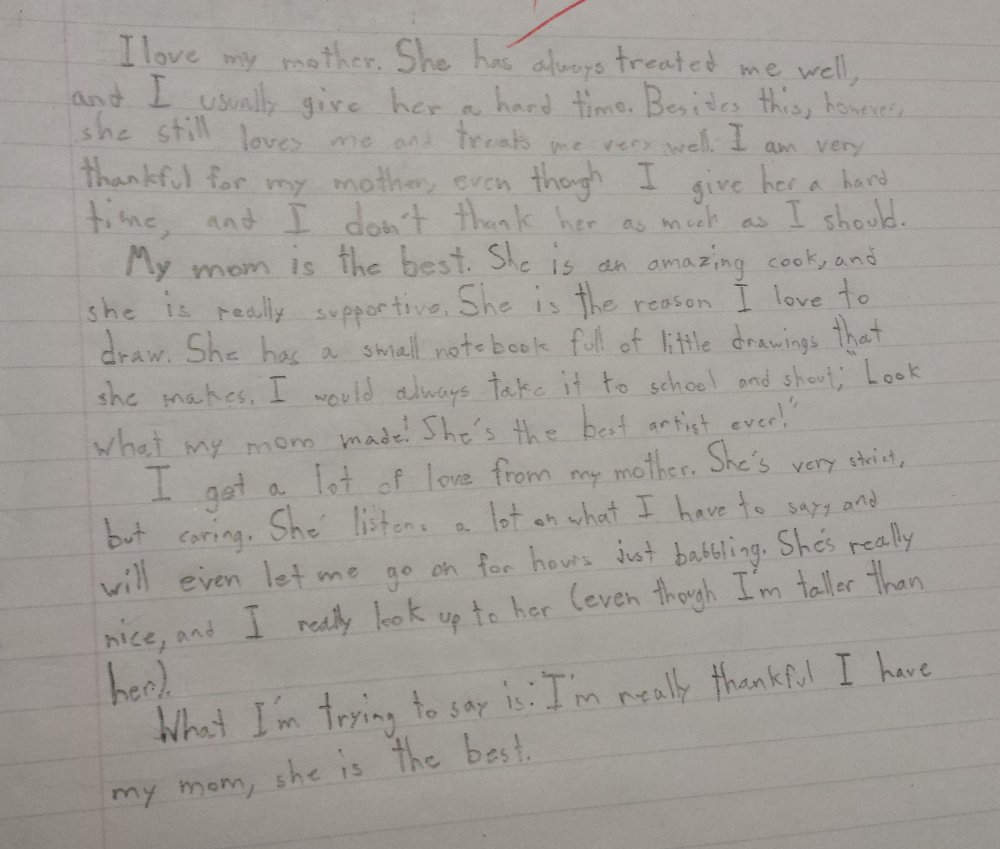 I love my mother. She has always treated me well,
and I usually give her a hard time. Besides this, however,
she still loves me and treats me very well. I am very
thankful for my mother, even though I give her a hard
time, and I don't thank her as much as I should.
My mom is the best. She is an amazing cook, and
she is really supportive. She is the reason I love to
draw. She has a small notebook full of little drawings that
she makes. I would always take it to school and shout; "Look
what my mom made! She's the best artist ever!"
I get a lot of love from my mother. She's very strict,
but caring. She listens a lot on what I have to say, and
will even let me go on for hours just babbling. She's really
nice, and I really look up to her (even though I'm taller than
her).
What I'm trying to say is: I'm really thankful I have
my mom, she is the best.